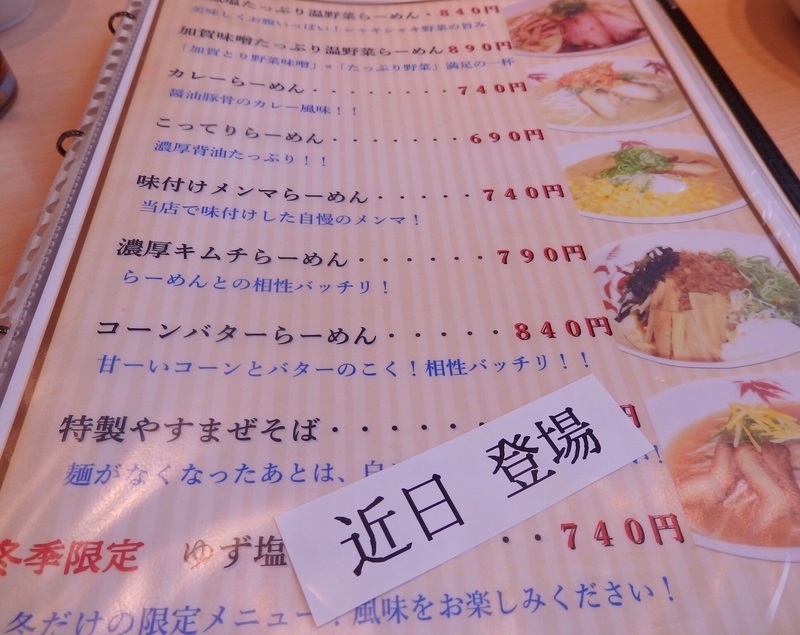 塩たっぷり温野菜らーめん・840円
美味しくお腹いっぱい!シャキシャキ野菜の旨み
加賀味噌たっぷり温野菜らーめん890円
「加賀とり野菜味噌」×「たっぷり野菜」満足の一杯
カレーらーめん・・・・・・・・740円
醤油豚骨のカレー風味!!
こってりらーめん・・・・・・・690円
濃厚背油たっぷり!!
味付けメンマらーめん・・・・・740円
当店で味付けした自慢のメンマ!
濃厚キムチらーめん・・・・・・790円
らーめんとの相性バッチリ!
コーンバターらーめん・・・・・840円
甘ーいコーンとバターのこく!相性バッチリ!!
特製やすまぜそば・・・・・・・円
麺がなくなったあとは、白 !
近日 登場
冬季限定 ゆず塩 ・・740円
冬だけの限定メニュー 風味をお楽しみください!